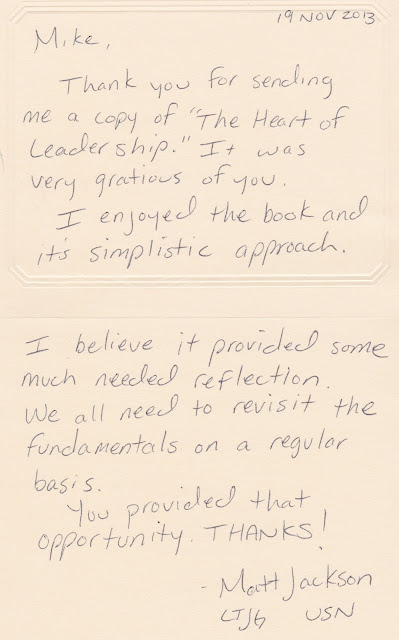 19 NOV 2013
Mike,
Thank you for sending
me a copy of "The Heart of
Leadership." It was
very gratious of you.
I enjoyed the book and
it's simplistic approach.
I believe it provided some
much needed reflection.
We all need to revisit the
fundamentals on a regular
basis.
You provided that
opportunity. THANKS!
- Matt Jackson
LTJG USN